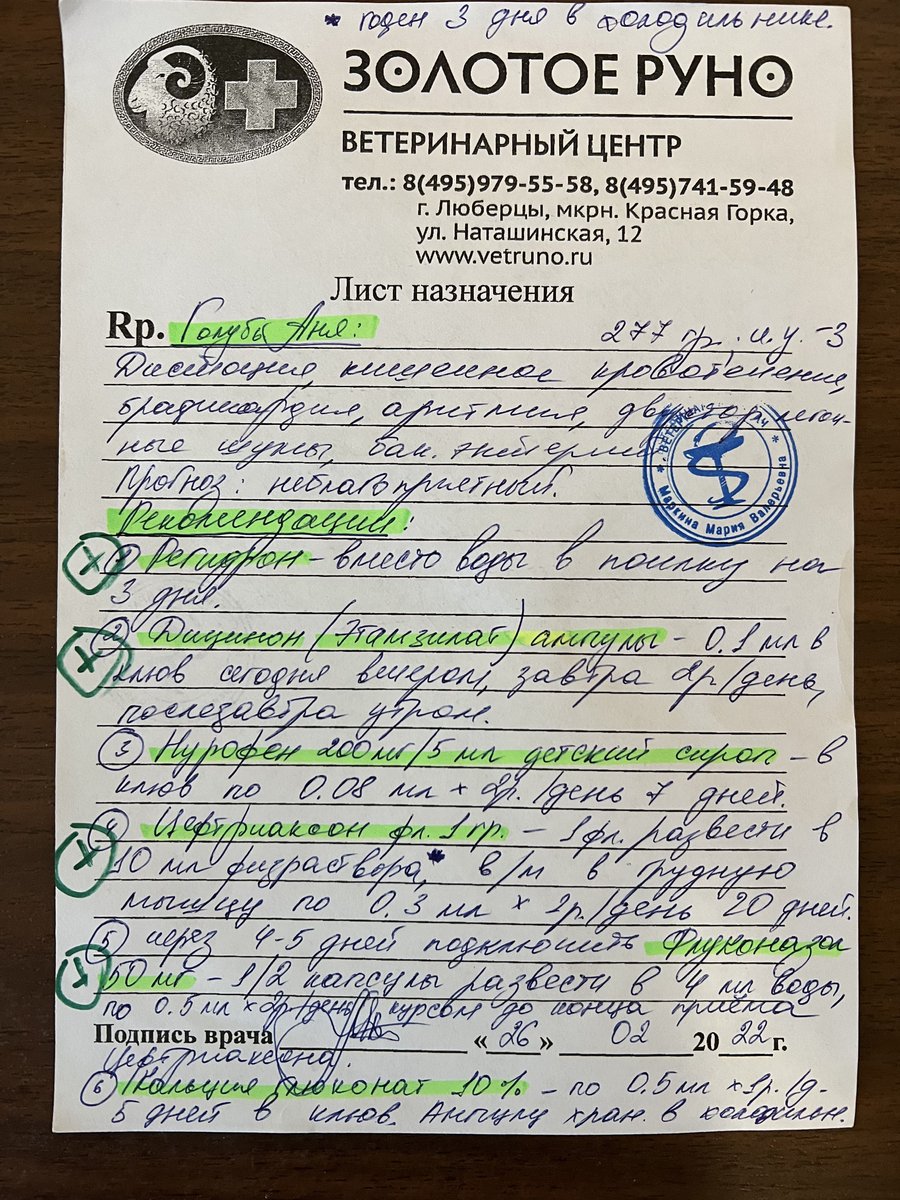 * годен 3 дня в холодильнике.
ЗОЛОТОЕ РУНО
ВЕТЕРИНАРНЫЙ ЦЕНТР
тел.: 8(495)979-55-58, 8(495)741-59-48
г. Люберцы, мкрн. Красная Горка,
ул. Наташинская, 12
www.vetruno.ru
Лист назначения
Rp. Голубь Аня: 277 гр, и.у. -3
кишечное кровотечение,
брадикардия, аритмия, двусторн легоч-
ные шумы, бак. энтерит
Прогноз: неблагоприятный.
ВЕТЕРИНАРНЫЙ ВРАЧ * Маркина Мария Валерьевна *
Рекомендации:
1 Регидрон - вместо воды в поилку на
3 дня.
2 Дицинон (Этамзилат) ампулы - 0.1 мл в
клюв сегодня вечером, завтра 2р/день,
послезавтра утром.
3 Нурофен 200мг/5 мл детский сироп - в
клюв по 0.08 мл × 2р./день 7 дней.
4 Цефтриаксон фл. 1 гр. - 1 фл. развести в
10 мл физраствора*, в/м в грудную
мышцу по 0.3 мл × 2р./день 20 дней.
5 через 4-5 дней подключить Флуконазол
50 мг - 1/2 капсулы развести в 4 мл воды,
по 0.5 мл × 2р/день курсом до конца приёма
Подпись врача «26» 02 2022г.
Цефтриаксона.
6 Кальция глюконат 10% - по 0.5 мл × 1р./д-
5 дней в клюв. Ампулу хран. в холодильн.